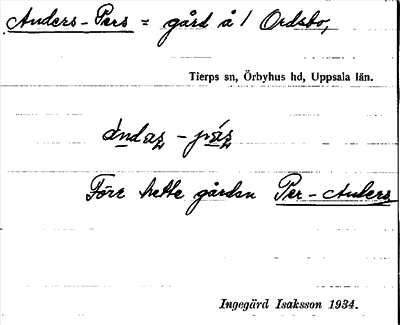 Anders-Pers = gård å 1 Ordsbo,
Tierps sn, Örbyhus hd, Uppsala län.
Förr hette gården Per-Anders
Ingegärd Isaksson 1934.